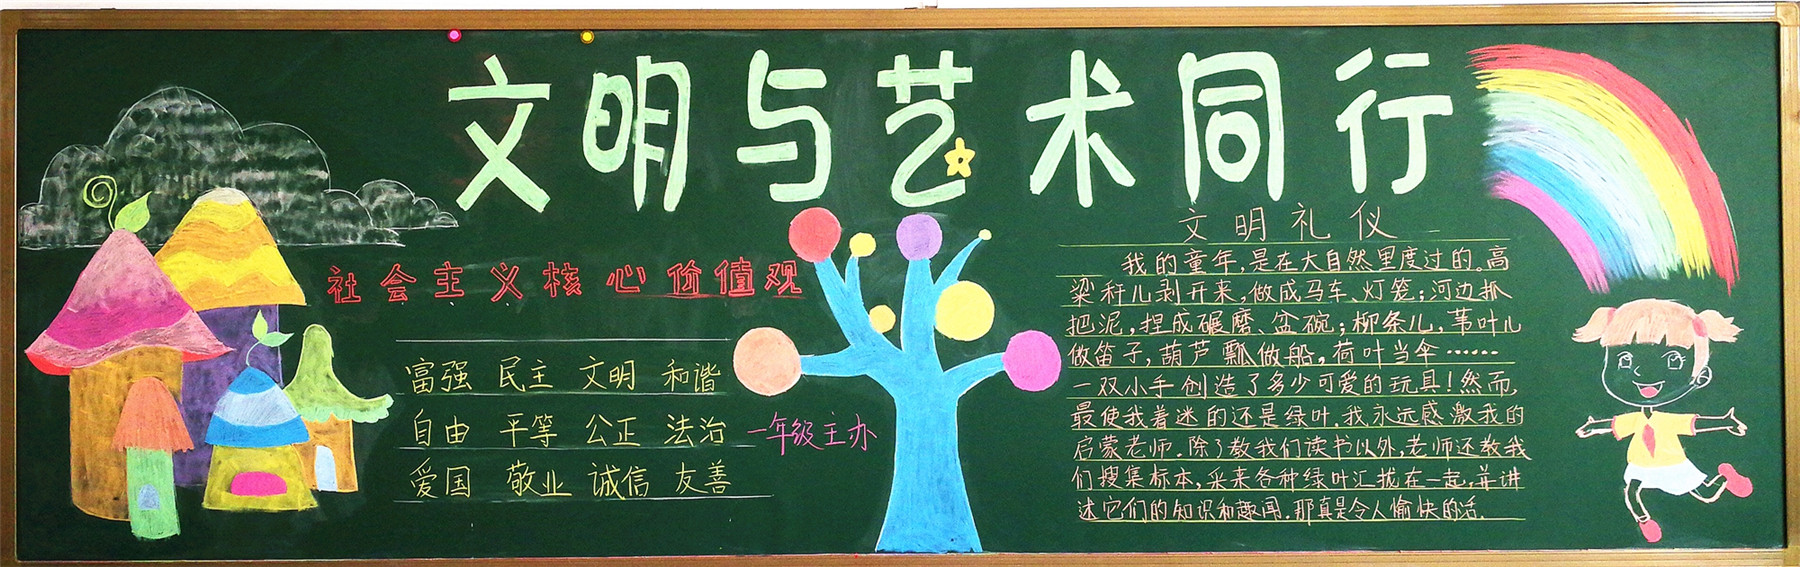 文明与艺术同行
社会主义核心价值观
富强 民主 文明 和谐
自由 平等 公正 法治
爱国 敬业 诚信 友善
一年级主办
文明礼仪
我的童年,是在大自然里度过的。高
梁秆儿剥开来,做成马车、灯笼;河边抓
把泥,捏成碾磨、盆碗;柳条儿,苇叶儿
做笛子,葫芦瓢做船,荷叶当伞……
一双小手创造了多少可爱的玩具!然而,
最使我着迷的还是绿叶.我永远感激我的
启蒙老师.除了教我们读书以外,老师还教我
们搜集标本,采来各种绿叶汇拢在一起,并讲
述它们的知识和趣闻.那真是令人愉快的活.